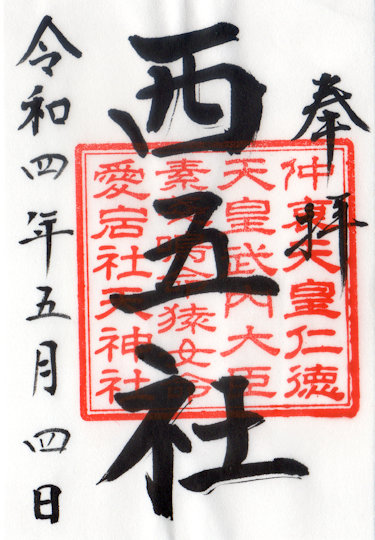 奉拝
西五社
令和四年五月四日
仲哀天皇仁徳
天皇武内大臣
素嗚命猿女命
愛宕社天神社